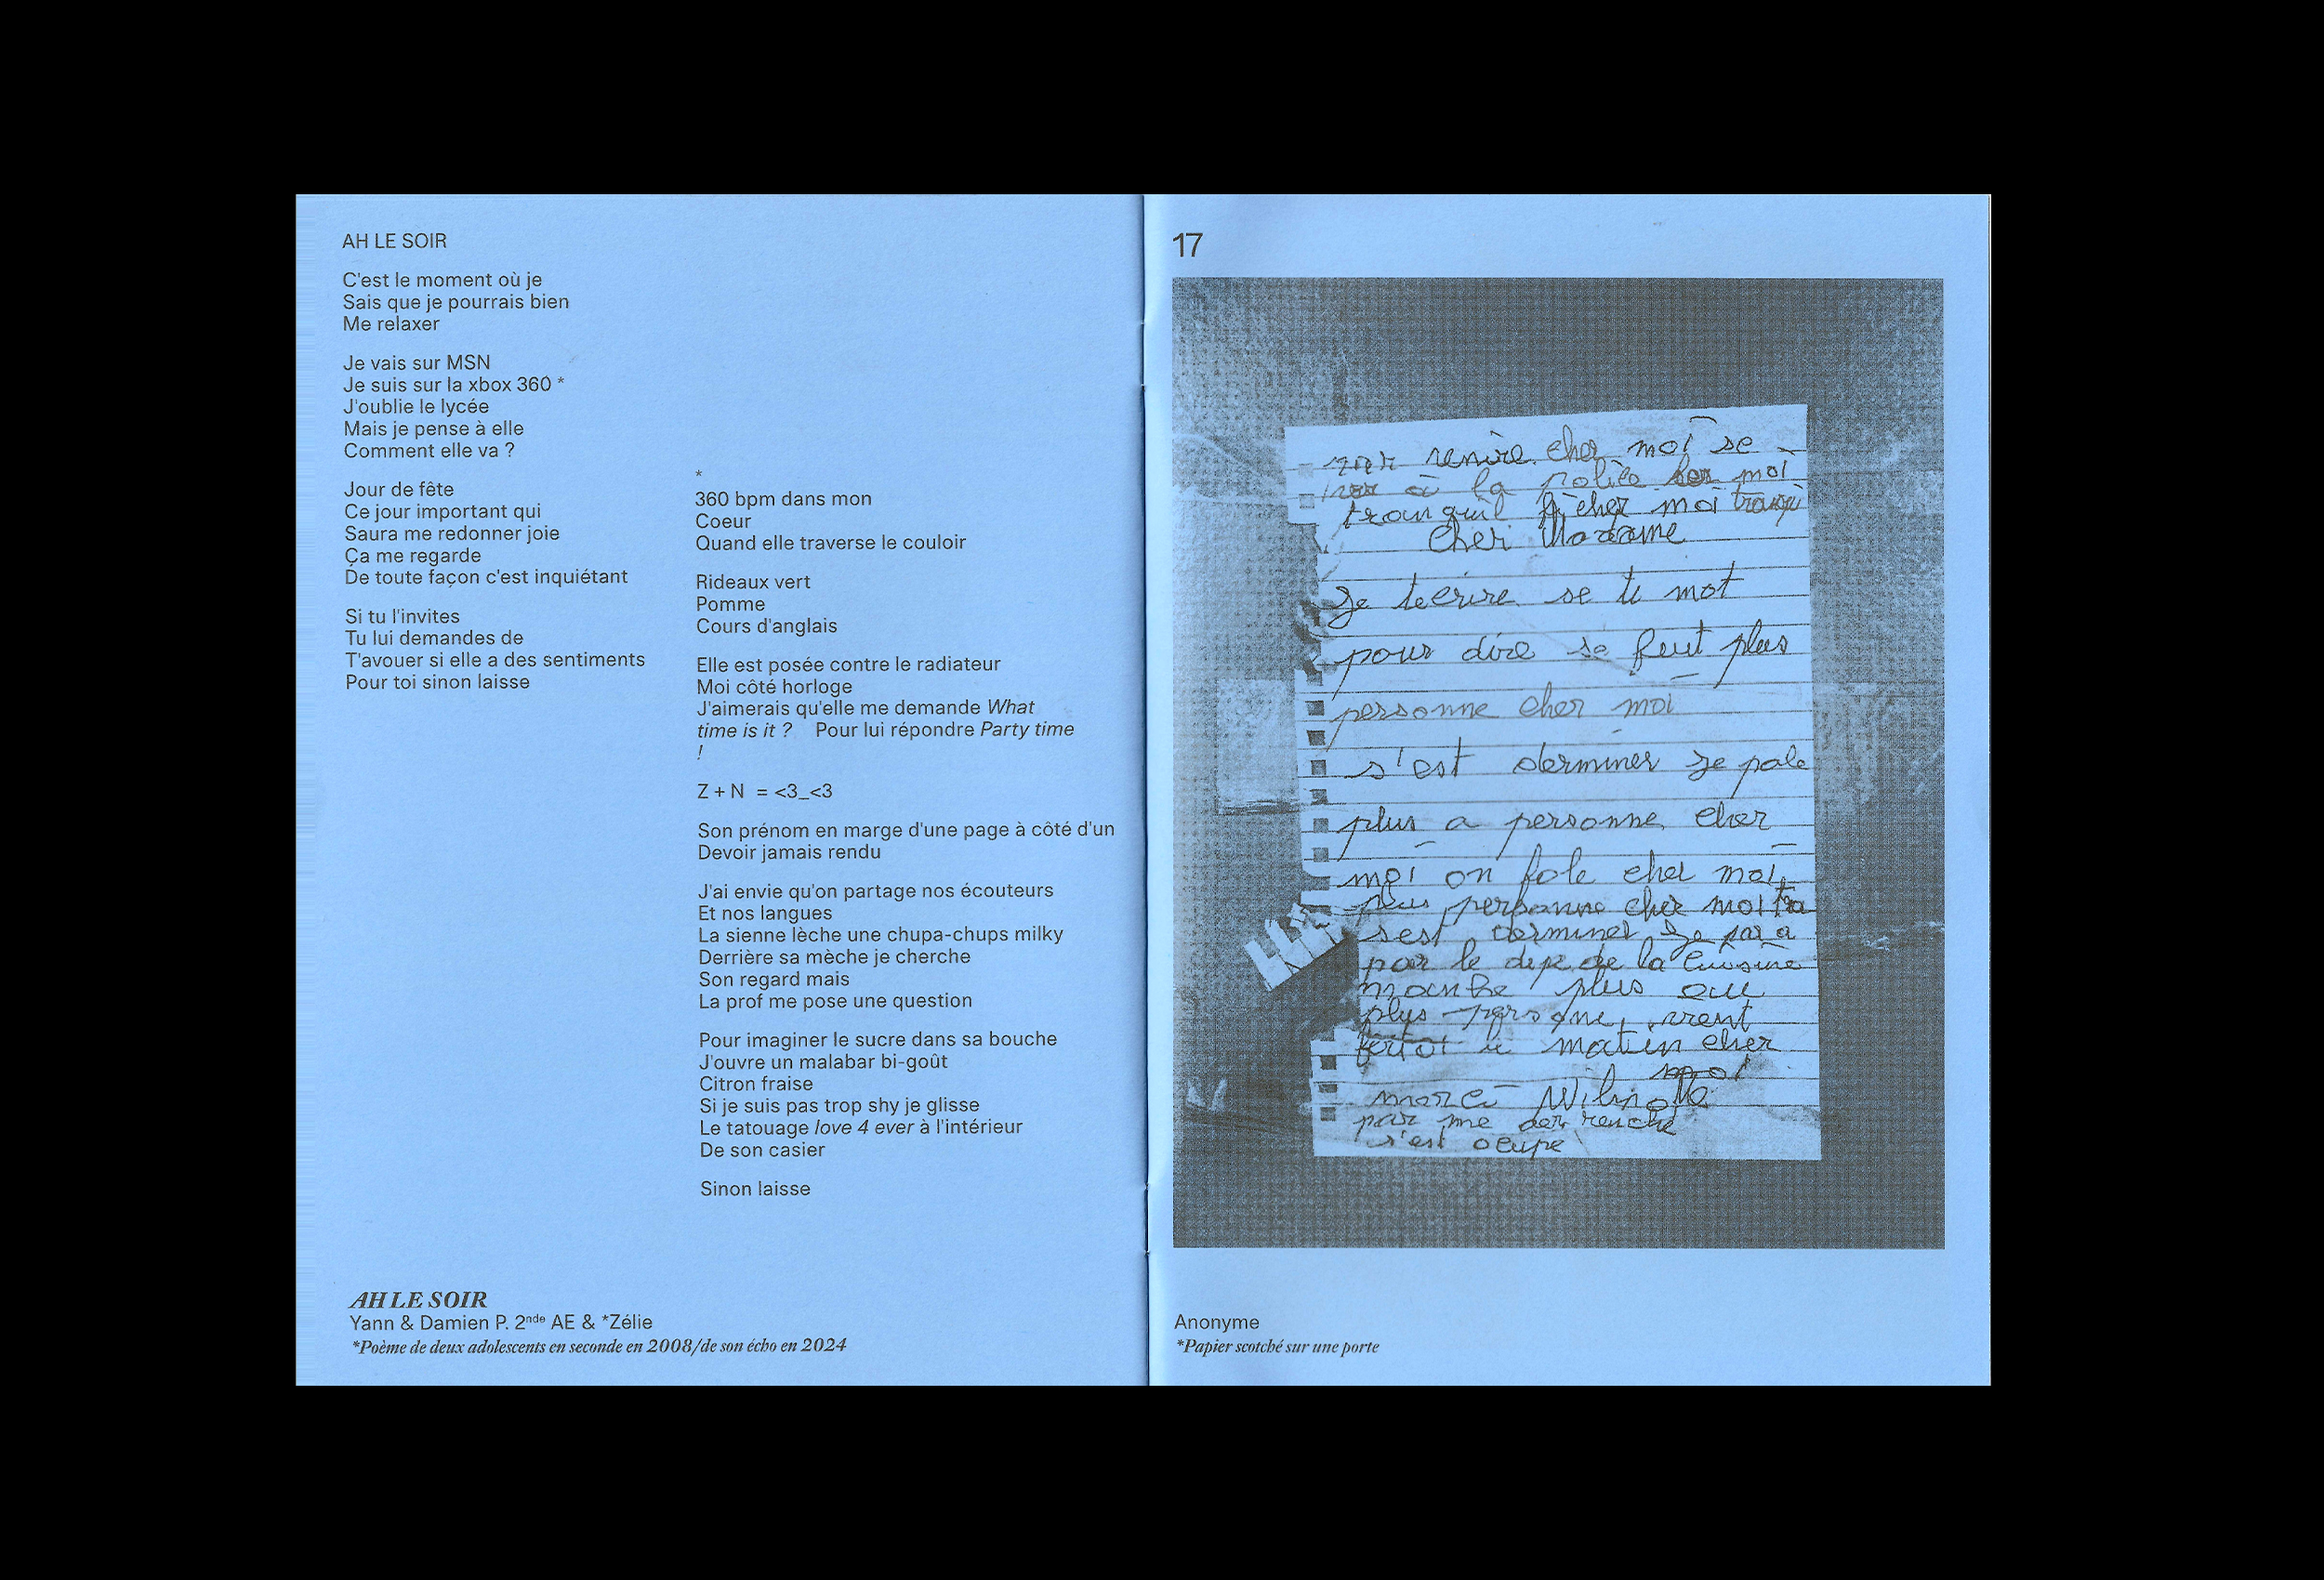 AH LE SOIR
C'est le moment où je
Sais que je pourrais bien
Me relaxer
Je vais sur MSN
Je suis sur la xbox 360 *
J'oublie le lycée
Mais je pense à elle
Comment elle va ?
Jour de fête
Ce jour important qui
Saura me redonner joie
Ça me regarde
De toute façon c'est inquiétant
Si tu l'invites
Tu lui demandes de
T'avouer si elle a des sentiments
Pour toi sinon laisse
*
360 bpm dans mon
Coeur
Quand elle traverse le couloir
Rideaux vert
Pomme
Cours d'anglais
Elle est posée contre le radiateur
Moi côté horloge
J'aimerais qu'elle me demande What
time is it ? Pour lui répondre Party time
!
Z + N = <3_<3
Son prénom en marge d'une page à côté d'un
Devoir jamais rendu
J'ai envie qu'on partage nos écouteurs
Et nos langues
La sienne lèche une chupa-chups milky
Derrière sa mèche je cherche
Son regard mais
La prof me pose une question
Pour imaginer le sucre dans sa bouche
J'ouvre un malabar bi-goût
Citron fraise
Si je suis pas trop shy je glisse
Le tatouage love 4 ever à l'intérieur
De son casier
Sinon laisse
AH LE SOIR
Yann & Damien P. 2nde AE & *Zélie
*Poème de deux adolescents en seconde en 2008/de son écho en 2024
17
renire cher moi se
la police moi
tranquil moi
Cher Madame
Je técrire se ti mot
pour dire sa feut plus
personne cher moi
s'est derminer je pale
plus a personne cher
moi on fole cher moi
plus personne cher moi
sest derminer
par le de la
plus ou
plus
matin cher
moi
merci
par me
s'est ocupe
Anonyme
*Papier scotché sur une porte